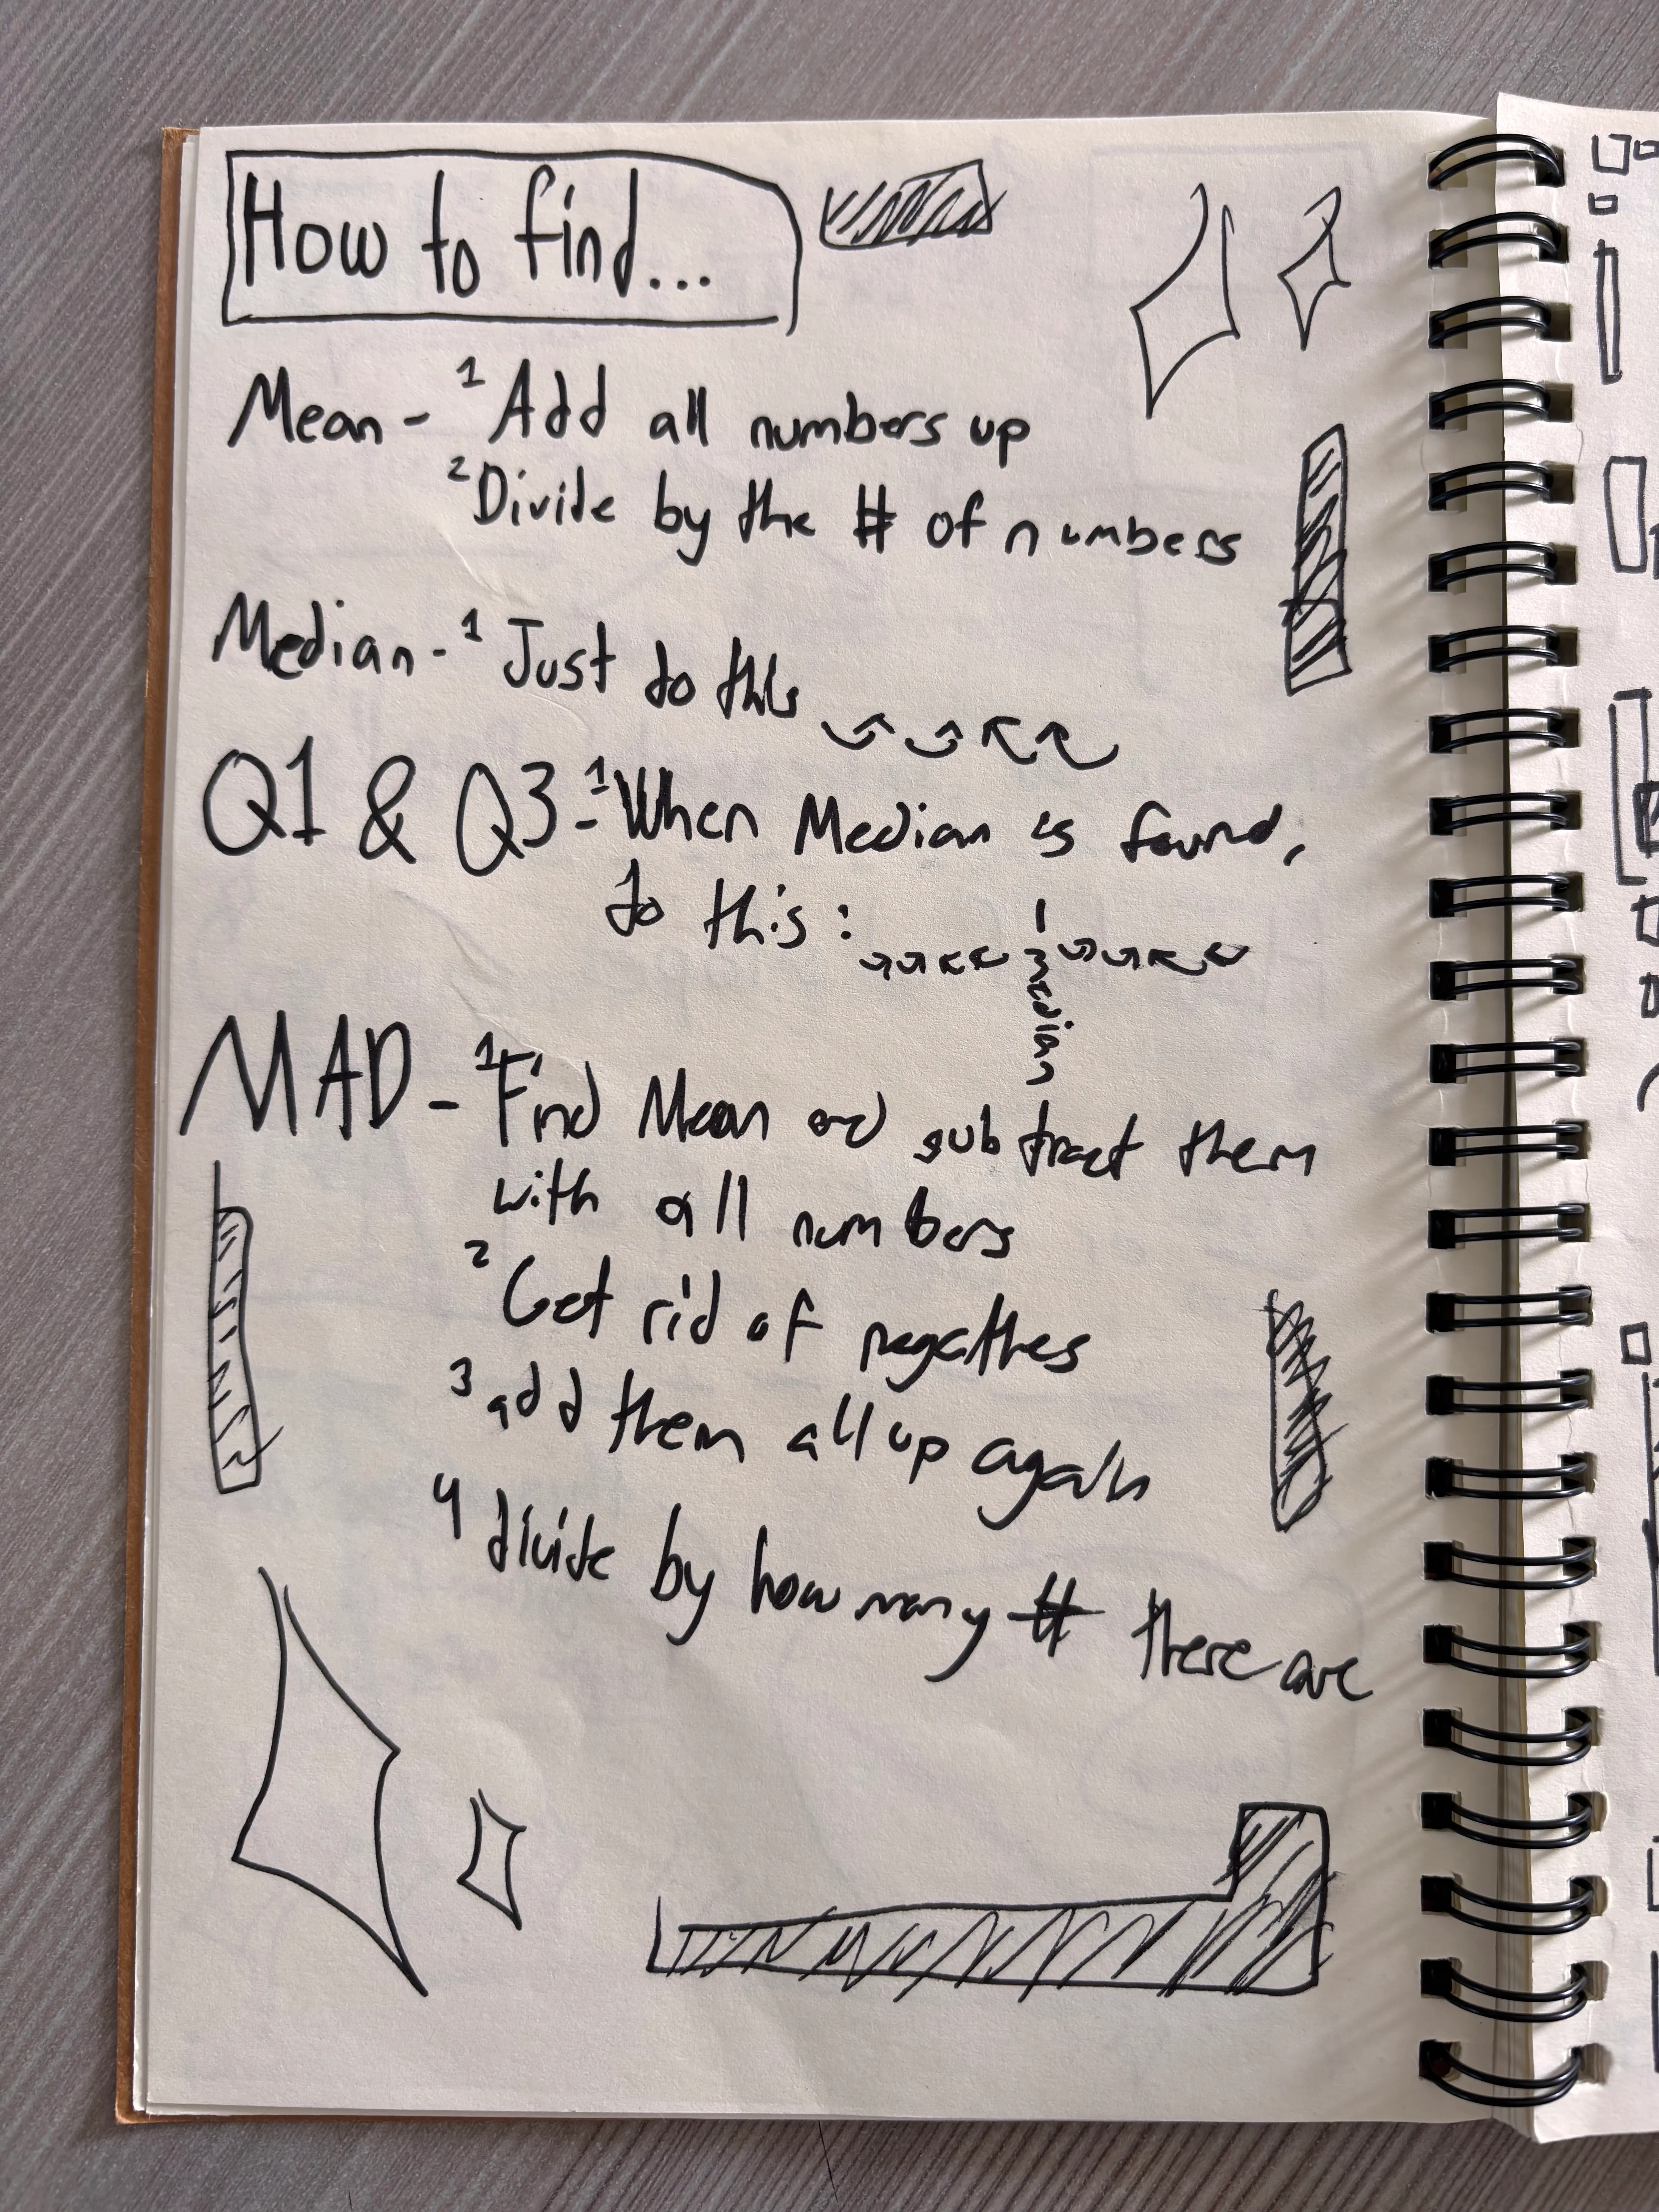 How to find...
Mean - 1 Add all numbers up
2 Divide by the # of numbers
Median - 1 Just do this
Q1 & Q3 - 1 When Median is found,
do this :
median
MAD - 1 Find Mean and subtract them
with all numbers
2 Get rid of negatives
3 add them all up again
4 divide by how many # there are